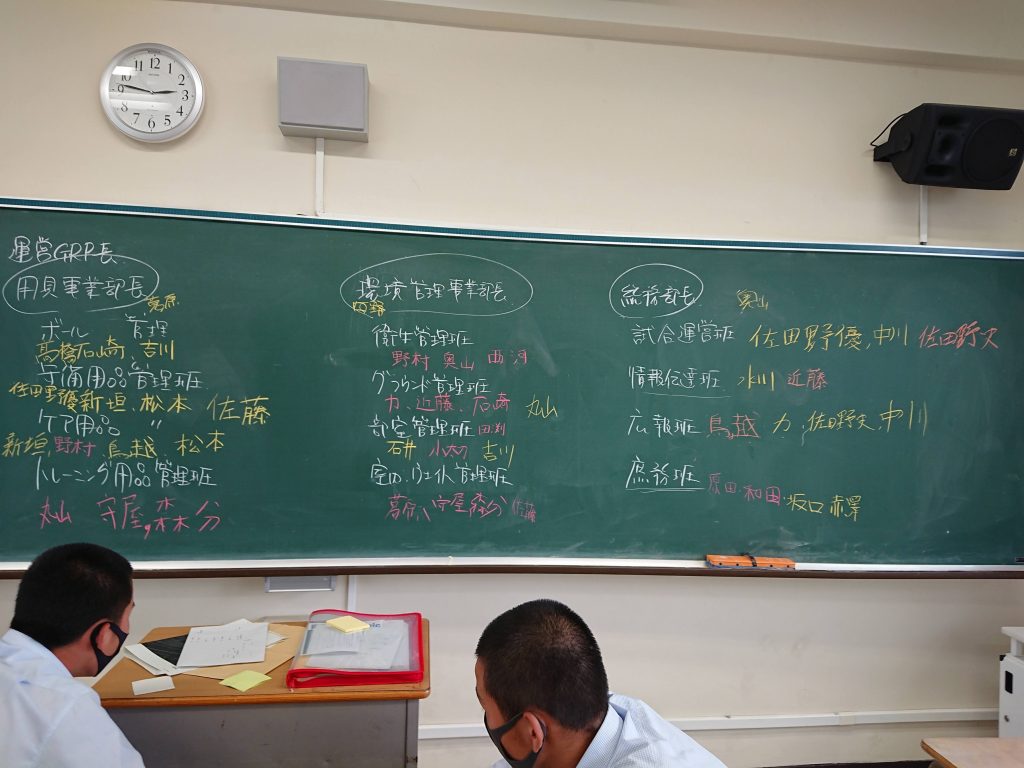 運営GRP長
用具事業部長
葛原
ボール 管理
高橋 石崎、吉川
守備用品管理班
佐田野優 新垣、松本 佐藤
ケア用品 〃
新垣 野村 鳥越 松本
トレーニング用品管理班
丸山 守屋,森 分
環境管理事業部長
衛生管理班
野村 奥山 西河
グラウンド管理班
力、近藤、石崎 丸山
部室管理班 田渕
石井 吉川
ウエイト管理班
守屋 森分 佐藤
総務部長 奥山
試合運営班 佐田野優,中川 佐田野丈
情報伝達班 水川 近藤
広報班 鳥越 力、佐田野丈,中川
庶務班 原田・和田・坂口 赤澤
12
1
2
3
4
5
6
7
8
9
10
11